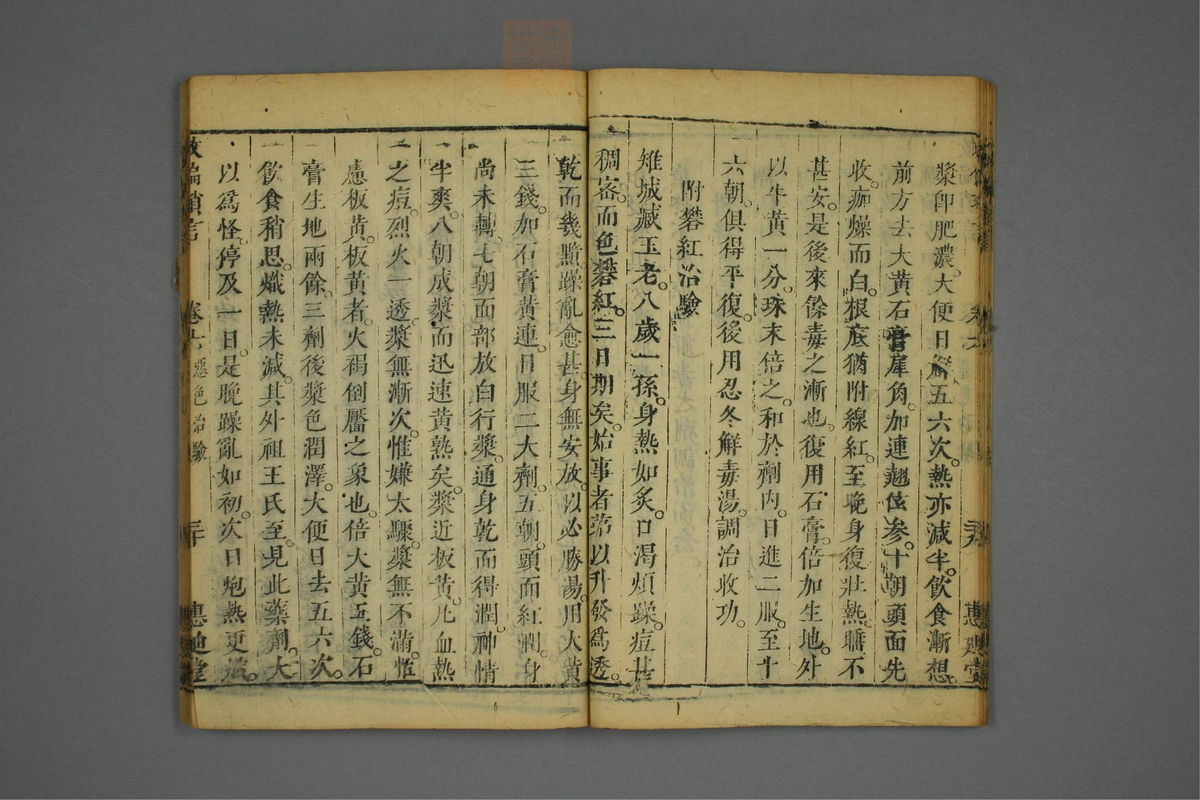 漿即肥濃。大便日解五六次。熱亦減半。飲食漸想。
前方去大黃石膏犀角。加連翹玄參。十朝頭面先
收。痂燥而白。根底猶附線紅。至晚身復壯熱。瞎不
甚安。是後來餘毒之漸也。復用石膏。倍加生地。外
以牛黃一分。珠末倍之。和於劑內。日進二服。至十
六朝。俱得平復。後用忍冬解毒湯。調治收功。
附礬紅治驗
雉城臧玉老。八歲一孫。身熱如炙。口渴煩躁。痘甚
稠密。而色礬紅。三日期矣。始事者第以升發為透。
乾而幾黯。躁亂愈甚。身無安放。以必勝湯。用大黃
三錢。加石膏黃連。日服二大劑。五朝。頭面紅潤。身
尚未轉。七朝面部放白行漿。通身乾而得潤。神情
半爽。八朝成漿而迅速黃熟矣。漿近板黃。凡血熱
之痘。烈火一透。漿無漸次。惟嫌太驟。漿無不滿。惟
慮板黃。板黃者。火褐倒靨之象也。倍大黃五錢。石
膏生地兩餘。三劑後漿色潤澤。大便日去五六次。
飲食稍思。熾熱未減。其外祖王氏至。見此藥劑。大
以為怪。停及一日。是晚躁亂如初。次日炮熱更
救偏瑣言 卷六 惡色治驗 三十 惠迪堂